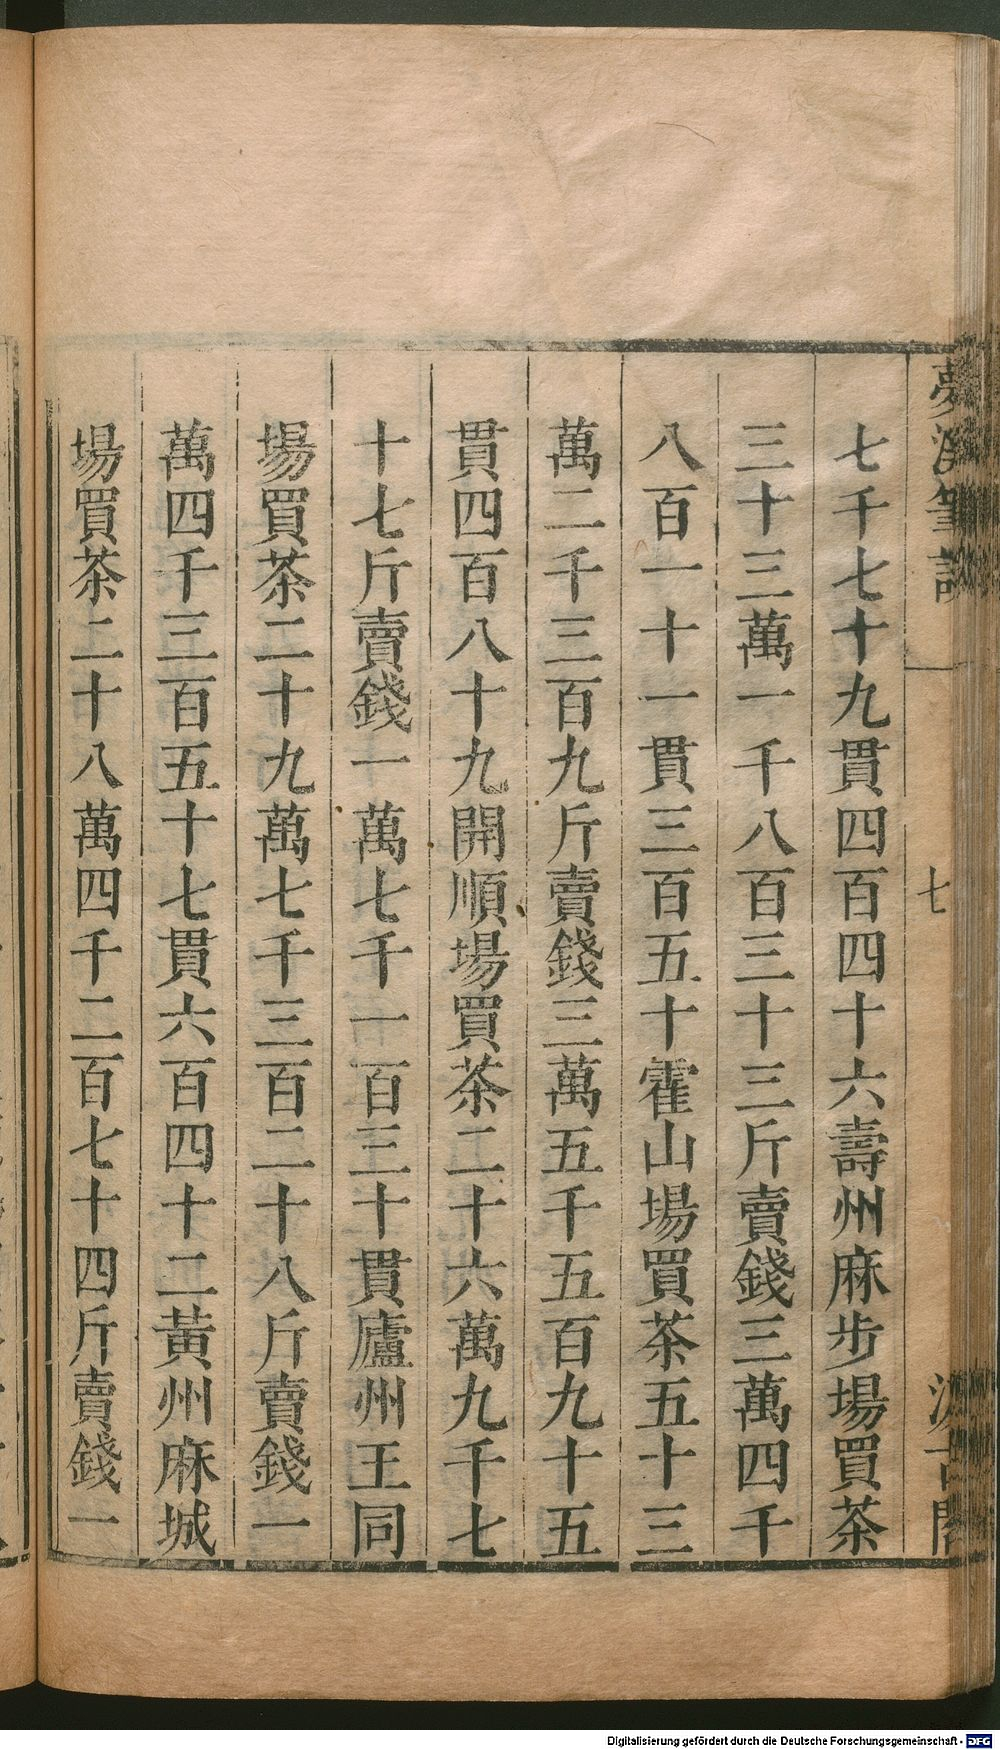 夢溪筆談
七
汲古閣
七千七十九貫四百四十六壽州麻步場買茶
三十三萬一千八百三十三斤賣錢三萬四千
八百一十一貫三百五十霍山場買茶五十三
萬二千三百九斤賣錢三萬五千五百九十五
貫四百八十九開順場買茶二十六萬九千七
十七斤賣錢一萬七千一百三十貫廬州王同
場買茶二十九萬七千三百二十八斤賣錢一
萬四千三百五十七貫六百四十二黃州麻城
場買茶二十八萬四千二百七十四斤賣錢一
Digitalisierung gefördert durch die Deutsche Forschungsgemeinschaft - DFG